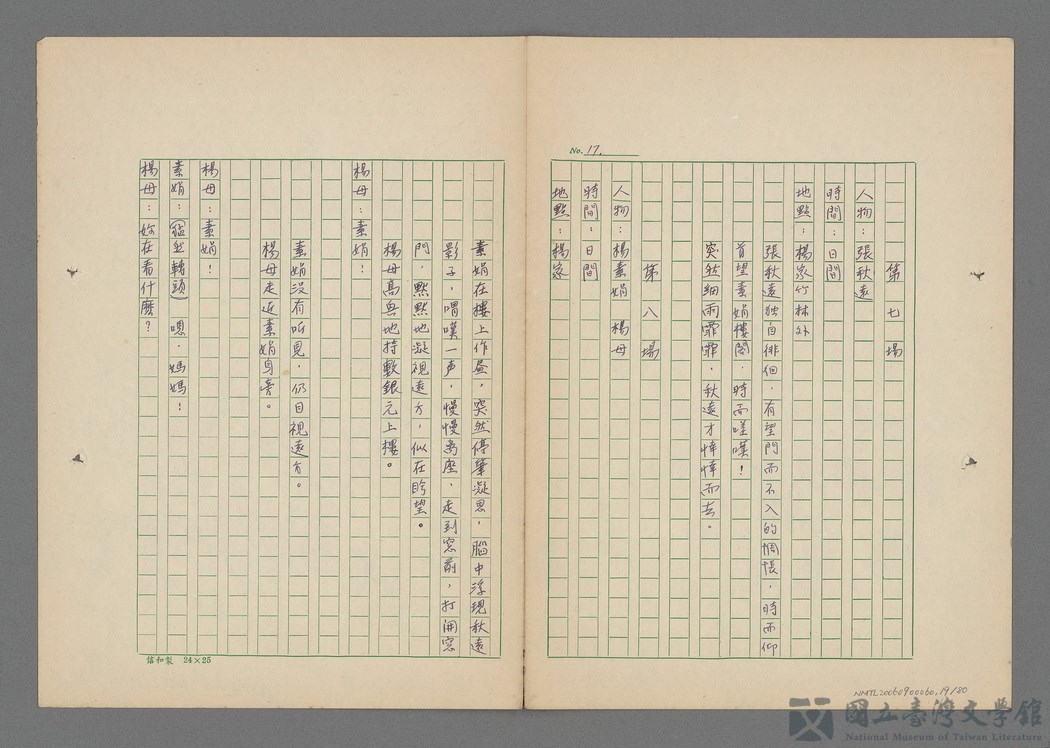 No. 17.
第七場
人物：張秋遠
時間：日間
地點：楊家竹林外
張秋遠獨自徘徊，有望門而不入的惆悵，時而仰
首望素娟樓閣，時而嗟嘆！
突然細雨霏霏，秋遠才悻悻而去。
第八場
人物：楊素娟 楊母
時間：日間
地點：楊家
素娟在樓上作畫，突然停筆凝思，腦中浮現秋遠
影子，喟嘆一声，慢慢離座，走到窓前，打開窓
門，默默地凝視遠方，似在盼望。
楊母高興地持數銀元上樓。
楊母：素娟！
素娟沒有听見，仍目視遠方。
楊母走近素娟身旁。
楊母：素娟！
素娟：(猛然轉頭) 嗯，媽媽！
楊母：妳在看什麼？
信和製 24×25
NMTL20060900060,19/80
國立臺灣文學館
National Museum of Taiwan Literature